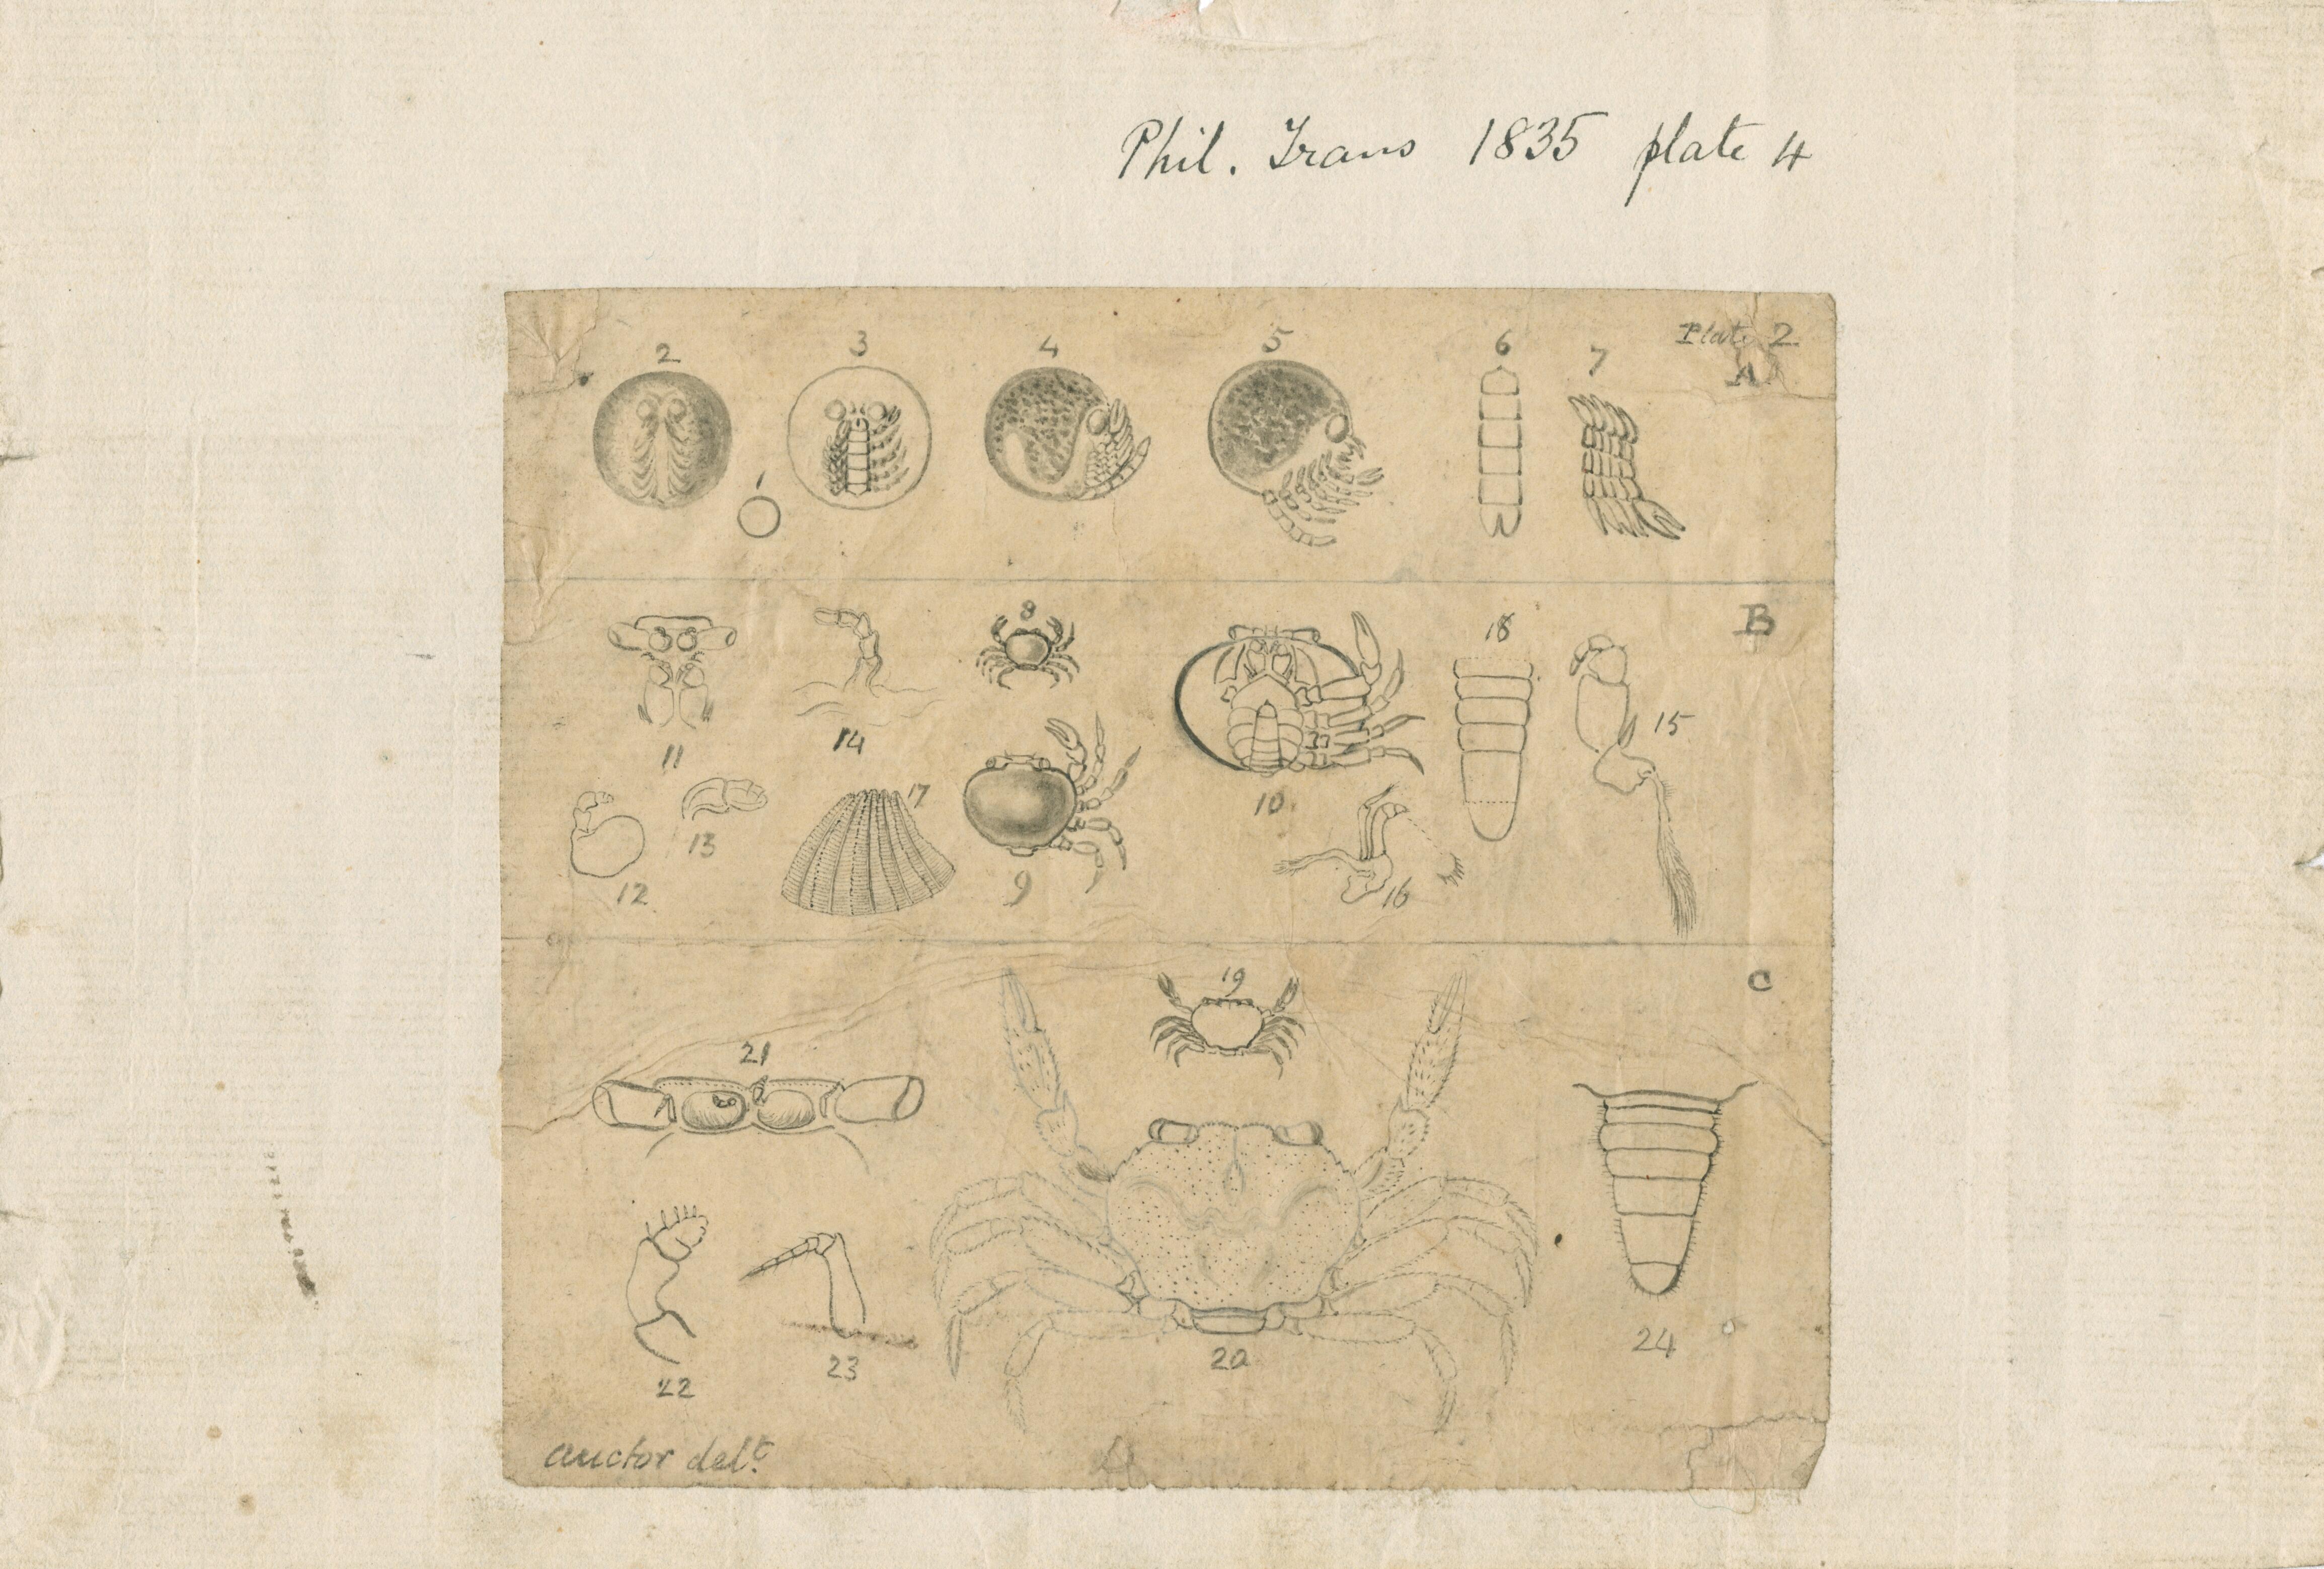 Phil. Trans 1835 plate 4
Plate 2
A
2
3
4
5
6
7
1
B
8
18
11
14
15
10
17
13
12
9
16
C
19
21
20
24
23
22
auctor delt.